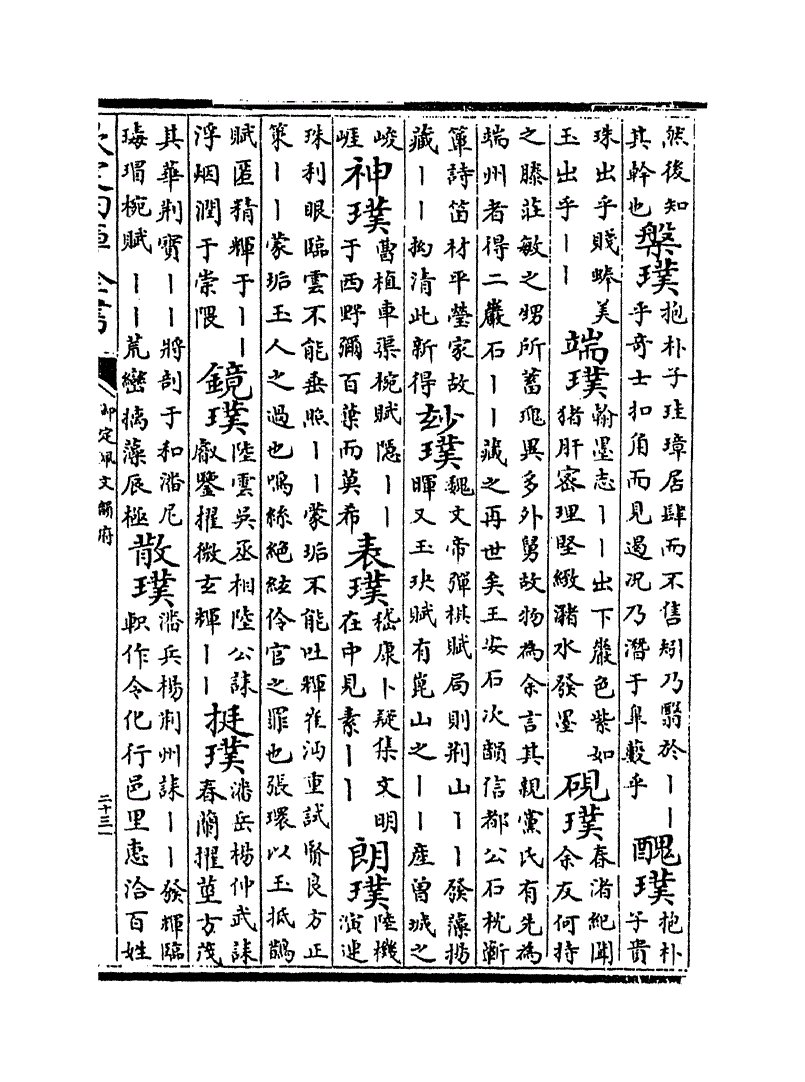 然後知其幹也槃璞抱朴子珪璋居肆而不售矧乃翳於丨丨乎奇士扣角而見遏况乃潛于皐藪乎醜璞抱朴子貴
珠出乎賤蚌美玉出乎丨丨端璞翰墨志丨丨出下巖色紫如猪肝密理堅緻瀦水發墨硯璞春渚紀聞余友何持
之滕莊敏之甥所蓄瓌異多外舅故物為余言其親黨氏有先為端州者得二巖石丨丨藏之再世矣王安石次韻信都公石枕蘄
簟詩笛材平瑩家故藏丨丨坳清此新得妙璞魏文帝彈棋賦局則荆山丨丨發藻揚暉又玉玦賦有崑山之丨丨產曾城之
峻崕神璞曹植車渠椀賦隱丨丨于西野彌百葉而莫希表璞嵇康卜疑集文明在中見素丨丨朗璞陸機演連
珠利眼臨雲不能垂照丨丨蒙垢不能吐輝崔沔重試賢良方正策丨丨蒙垢玉人之過也鳴絲絶絃伶官之罪也張環以玉抵鵲
賦匿精輝于丨丨浮烟潤于崇隈鏡璞陸雲吳丞相陸公誄叡鑒擢微玄輝丨丨挺璞潘岳楊仲武誄春蘭擢莖方茂
其華荆寳丨丨將剖于和潘尼瑇瑁椀賦丨丨荒巒摛藻辰極散璞潘岳楊荆州誄丨丨發輝臨軹作令化行邑里惠洽百姓
欽定四庫全書
御定佩文韻府
二十三